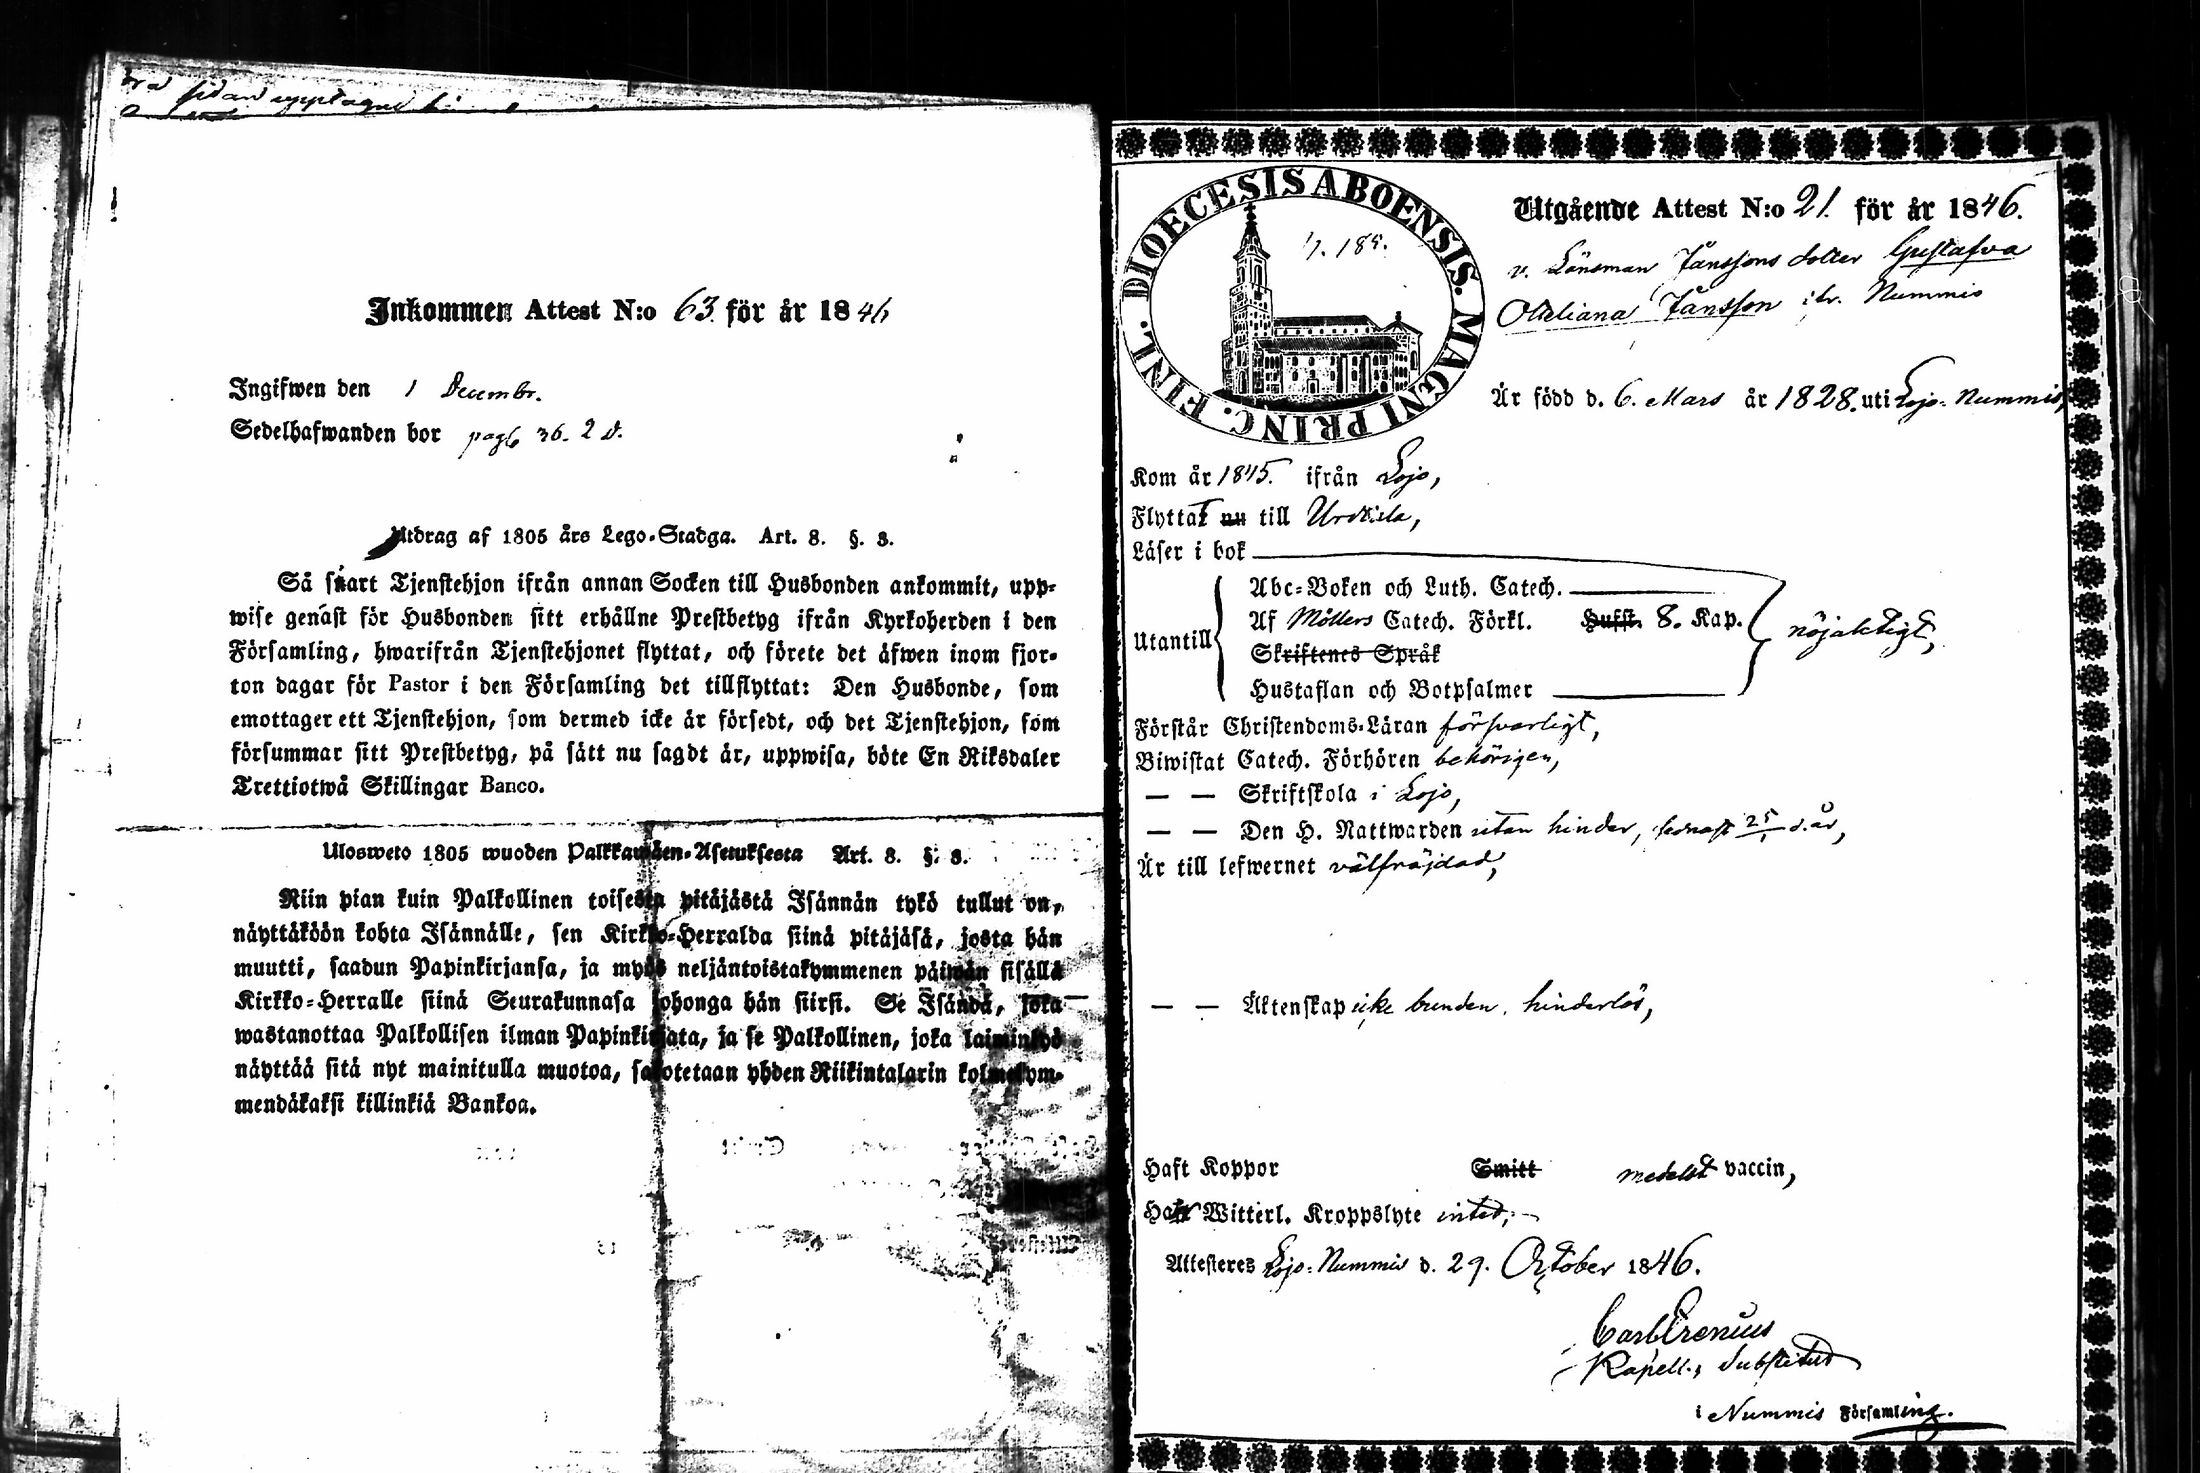 sidan upptagne
Inkommen Attest N:o 63. för år 1846
Ingifwen den 1 Decembr.
Sedelhafwanden bor pag 36. 2 d.
Utdrag af 1805 års Lego-Stadga. Art. 8. §. 3.
Så snart Tjenstehjon ifrån annan Socken till Husbonden ankommit, upp-
wise genast för Husbonden sitt erhållne Prestbetyg ifrån Kyrkoherden i den
Församling, hwarifrån Tjenstehjonet flyttat, och förete det äfwen inom fjor-
ton dagar för Pastor i den Församling det tillflyttat: Den Husbonde, som
emottager ett Tjenstehjon, som dermed icke är försedt, och det Tjenstehjon, som
försummar sitt Prestbetyg, på sätt nu sagdt är, uppwisa, böte En Riksdaler
Trettiotwå Skillingar Banco.
Ulosweto 1805 wuoden Palkkawäen-Asetuksesta Art. 8. §. 3.
Niin pian kuin Palkollinen toisesta pitäjästä Isännän tykö tullut on,
näyttäköön kohta Isännälle, sen Kirkko-Herralda siinä pitäjäsä, josta hän
muutti, saadun Papinkirjansa, ja myös neljäntoistakymmenen päiwän sisällä
Kirkko-Herralle siinä Seurakunnasa johonga hän siirsi. Se Isändä, joka
wastanottaa Palkollisen ilman Papinkirjata, ja se Palkollinen, joka laiminlyö
näyttää sitä nyt mainitulla muotoa, sakotetaan yhden Riikintalarin kolmekym-
mendäkaksi killinkiä Bankoa.
DIOECESIS ABOENSIS. MAGNI PRINC. FINL.
Utgående Attest N:o 21. för år 1846.
v. Länsman Janssons dotter Gustafva
Otteliana Jansson Nummis
Är född d. 6. Mars år 1828. uti Lojo-Nummis,
Kom år 1845. ifrån Lojo,
Flyttat nu till Urdiala,
Läser i bok
Utantill
Abc-Boken och Luth. Catech.
Af Möllers Catech. Förkl. Hufst. 8. Kap.
Skriftenes Språk
Hustaflan och Botpsalmer
nöjaktigt,
Förstår Christendoms-Läran försvarligt,
Biwistat Catech. Förhören behörigen,
— — Skriftskola i Lojo,
— — Den H. Nattwarden utan hinder, sednast 25 d. år,
Är till lefwernet välfräjdad,
— — Äktenskap icke bunden, hinderlös,
Haft Koppor Smitt medelst vaccin,
Har Witterl. Kroppslyte intet,
Attesteres Lojo-Nummis d. 29. October 1846.
Carl Orenius
Kapell., Substitut
i Nummis Församling.